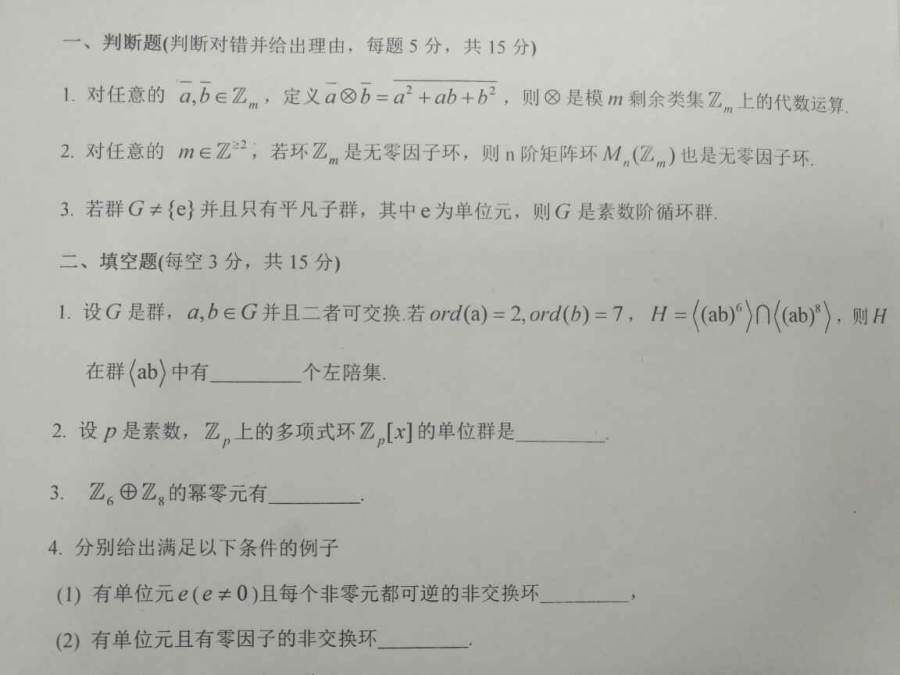 一、判断题(判断对错并给出理由，每题 5 分，共 15 分)
1. 对任意的 a̅,b̅∈ℤₘ，定义a̅⊗b̅=\overline{a²+ab+b²}，则⊗是模 m 剩余类集ℤₘ上的代数运算.
2. 对任意的 m∈ℤ^{≥2}，若环ℤₘ是无零因子环，则 n 阶矩阵环 Mₙ(ℤₘ)也是无零因子环.
3. 若群G≠{e}并且只有平凡子群，其中e为单位元，则G 是素数阶循环群.
二、填空题(每空 3 分，共 15 分)
1. 设G是群，a,b∈G并且二者可交换.若ord(a)=2,ord(b)=7，H=⟨(ab)⁶⟩⋂⟨(ab)⁸⟩，则H
在群⟨ab⟩中有________个左陪集.
2. 设 p 是素数，ℤₚ上的多项式环ℤₚ[x]的单位群是________.
3. ℤ₆⊕ℤ₈的幂零元有________.
4. 分别给出满足以下条件的例子
(1) 有单位元e(e≠0)且每个非零元都可逆的非交换环________，
(2) 有单位元且有零因子的非交换环________.